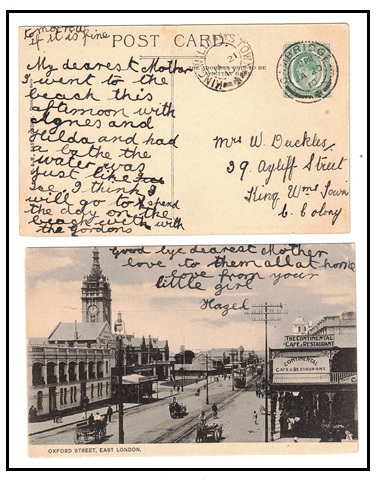 tomorrow
if it is fine
POST CARD.
THE ADDRESS ONLY TO BE
WRITTEN HERE
My dearest Mother
I went to the
beach this
afternoon with
Agnes and
Hilda and had
a bathe the
water was
just like
ice. I think I
will go to spend
the day on the
beach with with
the Gordons
Mrs W. Duckles,
39, Ayliff Street
King Wms Town
C. Colony
Good bye dearest Mother
love to them all at home
love from your
little girl
Hazel
THE CONTINENTAL
CAFE & RESTAURANT
CONTINENTAL
CAFE & RESTAURANT
OXFORD STREET, EAST LONDON.